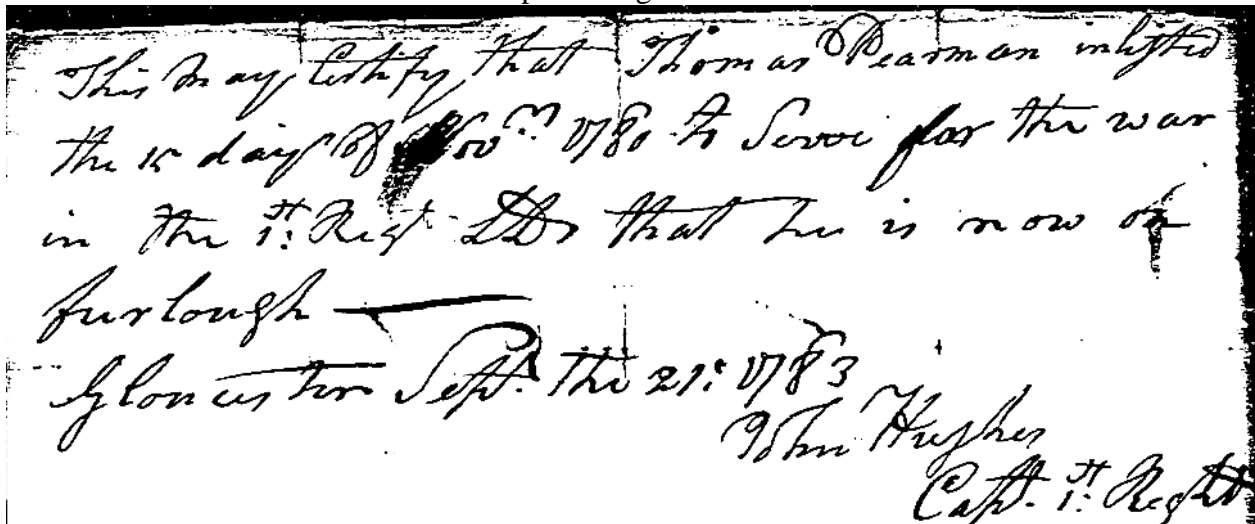 This may Certify that Thomas Pearman inlisted
the 15 day of Novm 1780 to Serve for the war
in the 1st Regt LDs that he is now on
furlough —
Gloucester Sept. the 21st 1783
John Hughes
Capt. 1st Regt